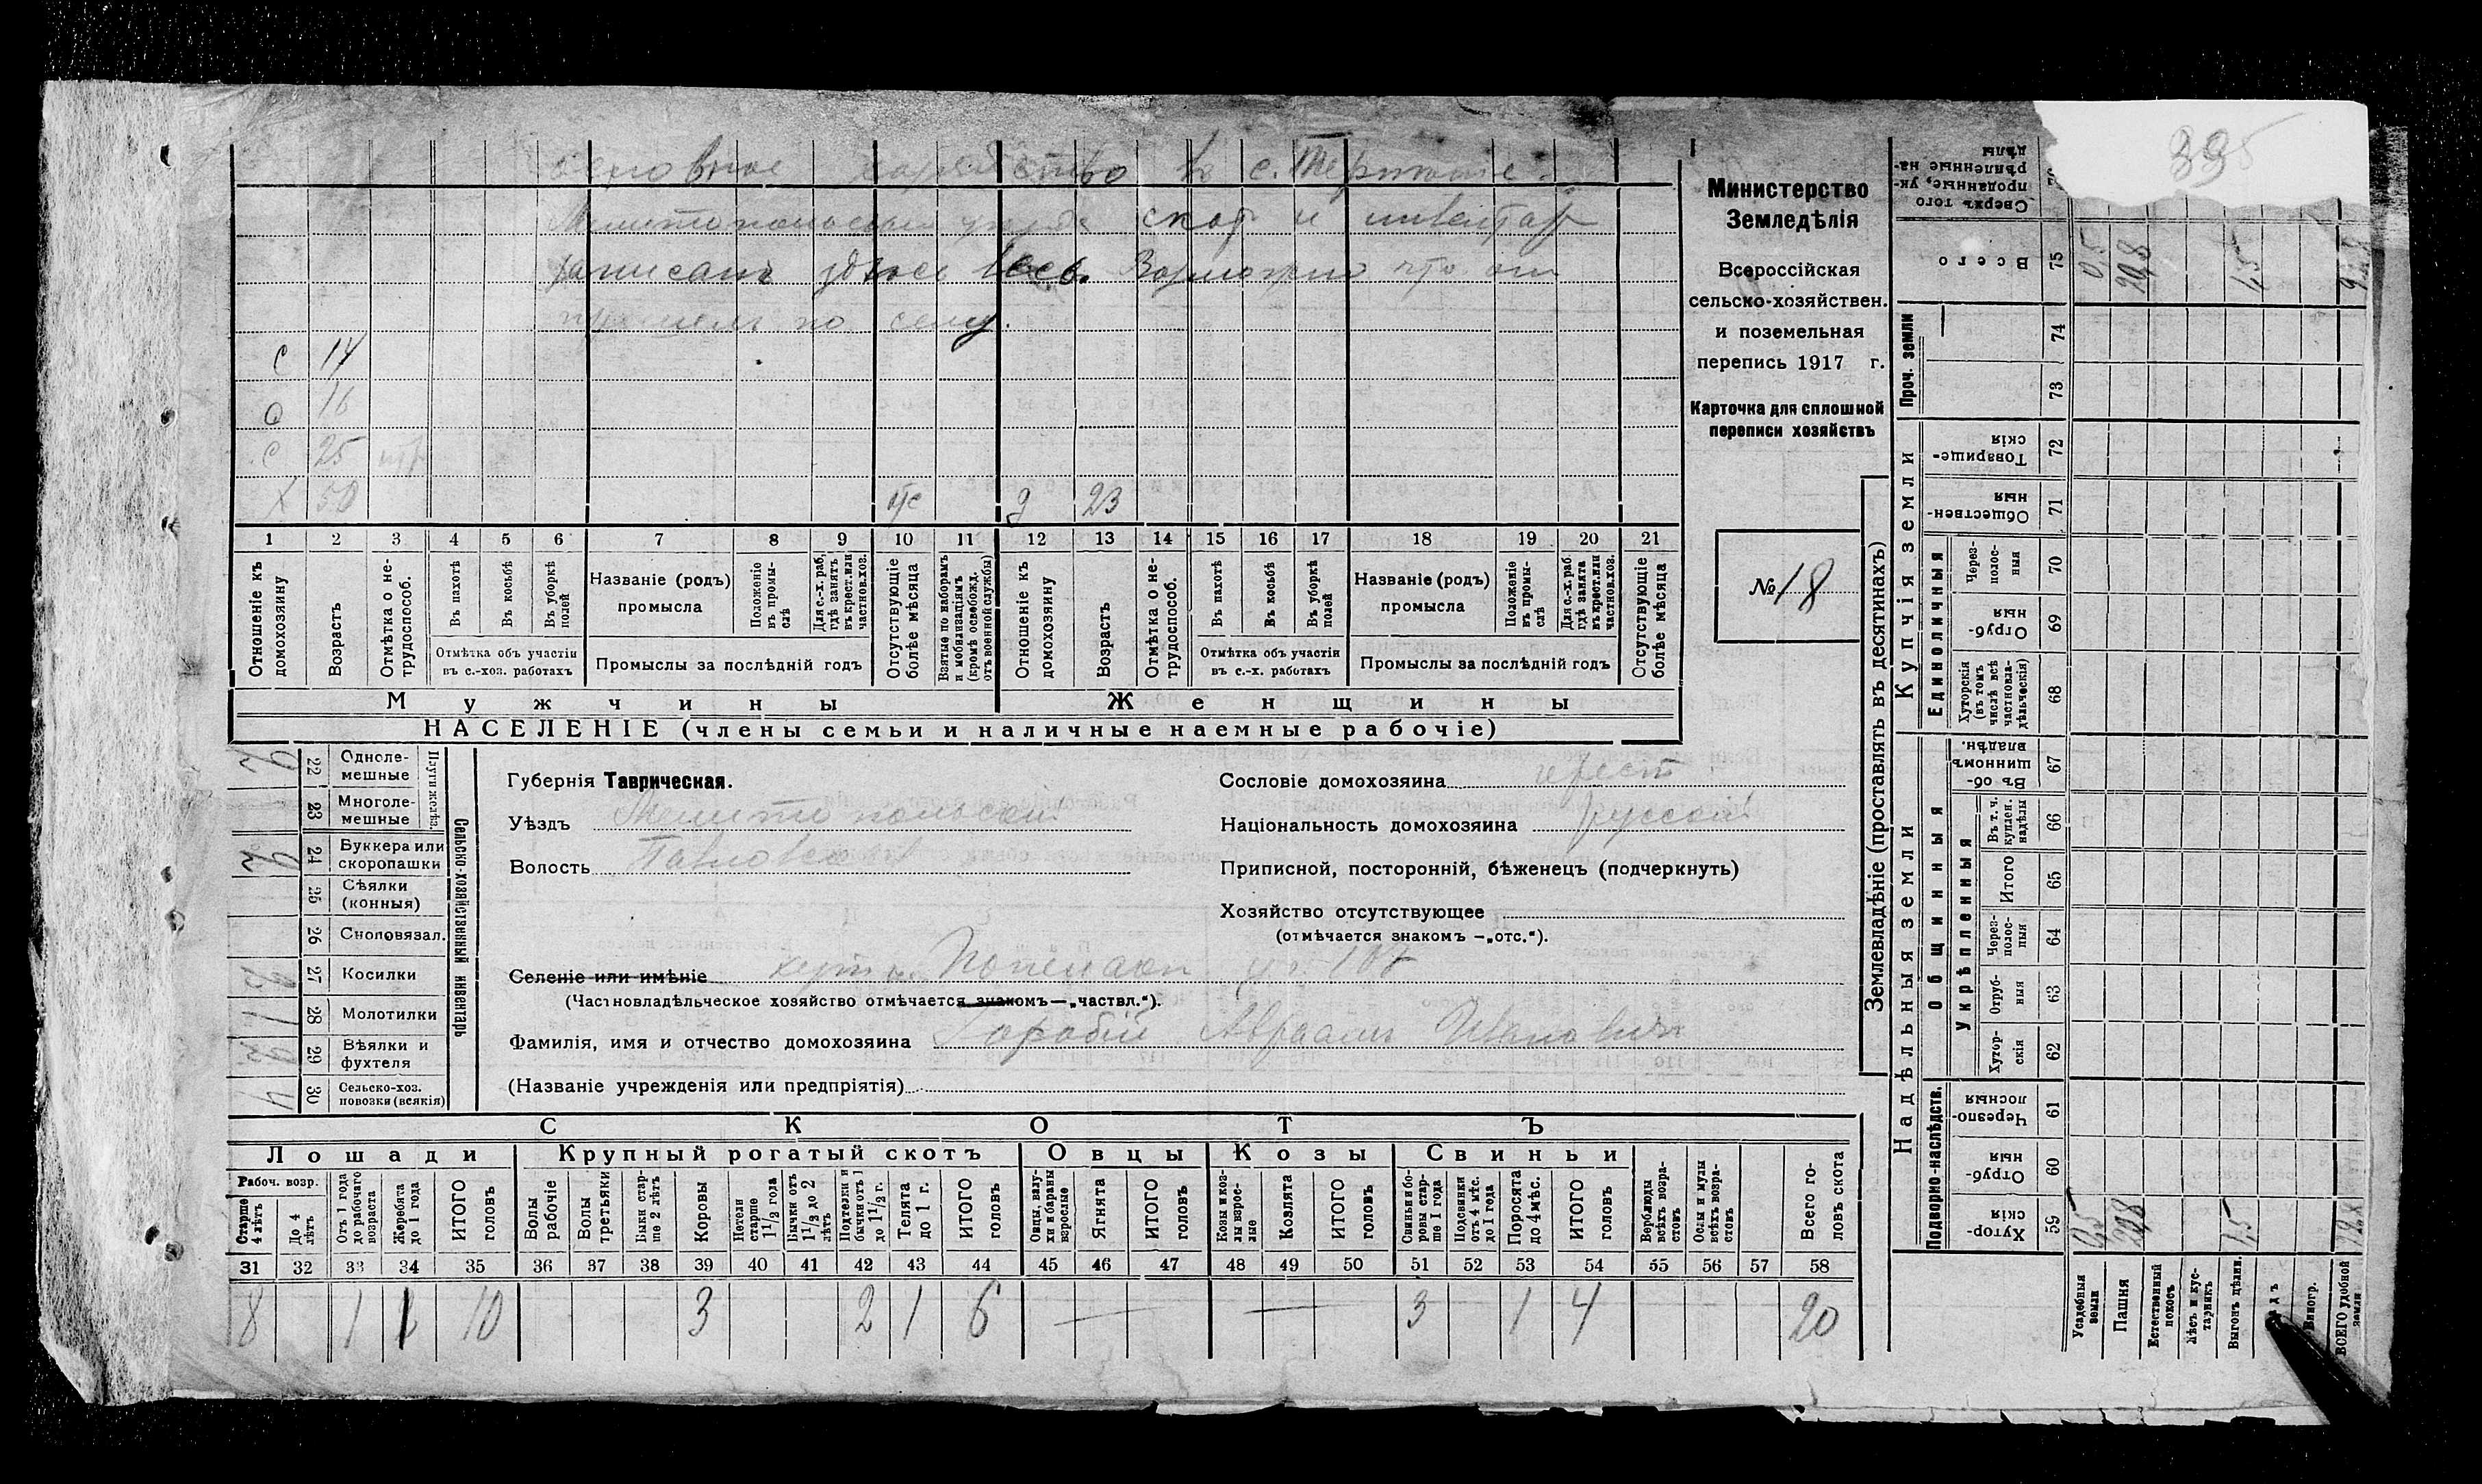 395
основное хозяйство въ с.
Мелитопольскаго уезда скот и инвентарь
записанъ здесь весь. Возможно что он
по селу.
с 14
16
с 25
х 50 23
1 2 3 4 5 6 7 8 9 10 11 12 13 14 15 16 17 18 19 20 21
Отношеніе къ домохозяину
Возрастъ
Отмѣтка о не-трудоспособ.
Въ пахотѣ
Въ косьбѣ
Въ уборкѣ полей
Отмѣтка объ участіи въ с.-хоз. работахъ
Названіе (родъ) промысла
Положеніе въ промы-слѣ
Для с.-х. раб, гдѣ занятъ въ крест. или частновл. хоз.
Промыслы за послѣдній годъ
Отсутствующіе болѣе мѣсяца
Взятые по наборамъ и мобилизаціямъ (кромѣ освобожд. отъ военной службы)
Отношеніе къ домохозяину
Возрастъ
Отмѣтка о не-трудоспособ.
Въ пахотѣ
Въ косьбѣ
Въ уборкѣ полей
Отмѣтка объ участіи въ с.-х. работахъ
Названіе (родъ) промысла
Положеніе въ промы-слѣ
Для с.-х. раб гдѣ занята въ крест. или частнов. хоз.
Промыслы за послѣдній годъ
Отсутствующіе болѣе мѣсяца
Мужчины Женщины
НАСЕЛЕНІЕ (члены семьи и наличные наемные рабочіе)
Министерство
Земледѣлія
Всероссійская
сельско-хозяйствен.
и поземельная
перепись 1917 г.
Карточка для сплошной
переписи хозяйствъ
№ 18
22 Одноле-мешные
23 Многоле-мешные
Плуги желѣз.
24 Буккера или скоропашки
25 Сѣялки (конныя)
26 Сноповязал.
27 Косилки
28 Молотилки
29 Вѣялки и фухтеля
30 Сельско-хоз. повозки (всякія)
Сельско-хозяйственный инвентарь
Губернія Таврическая.
Уѣздъ Мелитопольскій
Волость Павловская
Селеніе или имѣніе
(Частновладѣльческое хозяйство отмѣчается знакомъ—„частвл.“).
Фамилія, имя и отчество домохозяина Авраамъ Ивановичъ
(Названіе учрежденія или предпріятія)
Сословіе домохозяина крест.
Національность домохозяина русскій
Приписной, посторонній, бѣженецъ (подчеркнуть)
Хозяйство отсутствующее
(отмѣчается знакомъ —„отс.“).
СКОТЪ
Лошади Крупный рогатый скотъ Овцы Козы Свиньи
Рабоч. возр.
Старше 4 лѣтъ
До 4 лѣтъ
Отъ 1 года до рабочаго возраста
Жеребята до 1 года
ИТОГО головъ
Волы рабочіе
Волы третьяки
Быки стар-ше 2 лѣтъ
Коровы
Нетели старше 1 1/2 года
Бычки отъ 1 1/2 до 2 лѣтъ
Подтелки и бычки отъ 1 до 1 1/2 г.
Телята до 1 г.
ИТОГО головъ
Овцы, валу-хи и бараны взрослые
Ягнята
ИТОГО головъ
Козы и коз-лы взрос-лые
Козлята
ИТОГО головъ
Свиньи и бо-ровы стар-ше 1 года
Подсвинки отъ 4 мѣс. до 1 года
Поросята до 4 мѣс.
ИТОГО головъ
Верблюды всѣхъ возра-стовъ
Ослы и мулы всѣхъ возра-стовъ
Всего го-ловъ скота
31 32 33 34 35 36 37 38 39 40 41 42 43 44 45 46 47 48 49 50 51 52 53 54 55 56 57 58
8 1 1 10 3 2 1 6 — — 3 1 4 20
Землевладѣніе (проставлять въ десятинахъ)
Надѣльныя земли Купчія земли Проч. земли
Подворно-наслѣдств.
Общинныя
Укрѣпленныя
Единоличныя
Сверхъ того проданные, ук-рѣпленные на-дѣлы
Всего 75
74
73
Товарище-скія 72
Обществен-ныя 71
Через-полос-ныя 70
Отруб-ныя 69
Хуторскія (въ томъ числѣ всѣ частновла-дѣльческія) 68
Въ об-щинномъ владѣн. 67
Въ т. ч. куплен. надѣлы 66
Итого 65
Через-полос-ныя 64
Отруб-ныя 63
Хутор-скія 62
Черезпо-лосныя 61
Отруб-ныя 60
Хутор-скія 59
Усадебныя земли
Пашня
Естественный покосъ
Лѣсъ и кус-тарникъ
Выгонъ цѣлин.
Виногр.
ВСЕГО удобной земли